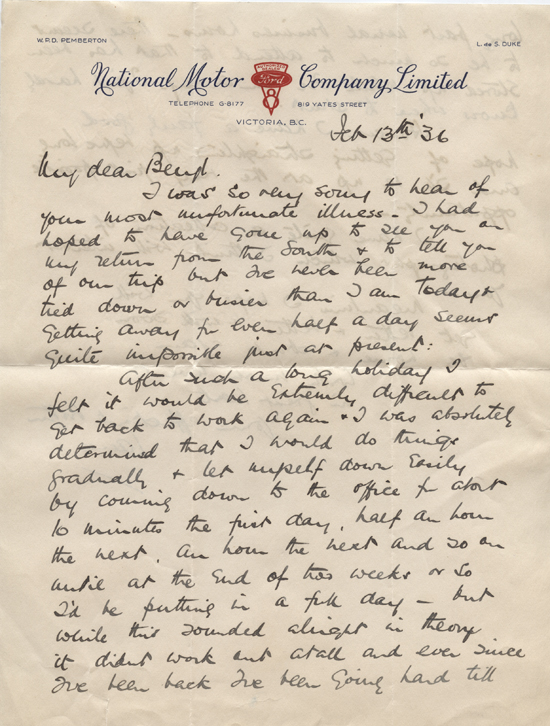 W.P.D. PEMBERTON
L. de S. DUKE
National Motor Ford V8 Company Limited
TELEPHONE G-8177 819 YATES STREET
VICTORIA, B.C.
Feb 13th '36
My dear
I was so very sorry to hear of
your most unfortunate illness - I had
hoped to have gone up to see you on
my return from the South & to tell you
of our trip but I've never been more
tied down or busier than I am today &
getting away for even half a day seems
quite impossible just at present:
After such a long holiday I
felt it would be extremely difficult to
get back to work again & I was absolutely
determined that I would do things
gradually & let myself down easily
by coming down to the office for about
10 minutes the first day, half an hour
the next, an hour the next and so on
until at the end of two weeks or so
I'd be putting in a full day - but
while this sounded alright in theory
it didnt work out atall and ever since
I've been back I've been going hard till